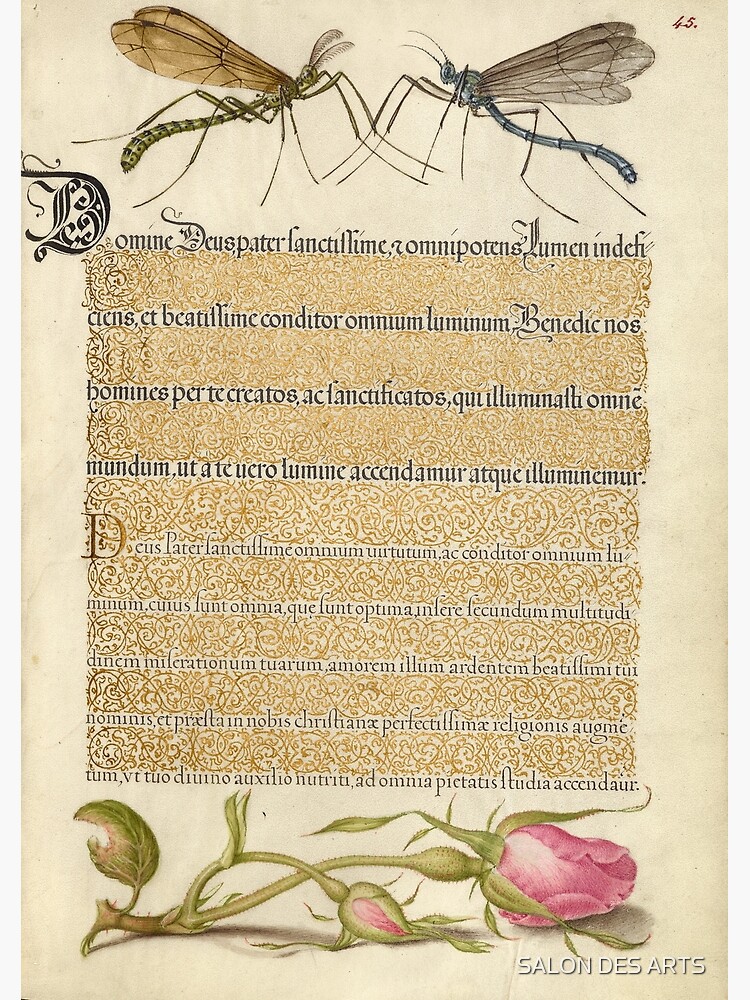 45.
Domine Deus pater sanctissime, ⁊ omnipotens Lumen indefi-
ciens, et beatissime conditor omnium luminum, Benedic nos
homines per te creatos, ac sanctificatos, qui illuminasti omnē
mundum, ut a te uero lumine accendamur atque illuminemur.
Deus Pater sanctissime omnium uirtutum, ac conditor omnium lu-
minum, cuius sunt omnia, que sunt optima, insere secundum multitudi-
dinem miserationum tuarum, amorem illum ardentem beatissimi tui
nominis, et præsta in nobis christianæ perfectissimæ religionis augmē
tum, vt tuo diuino auxilio nutriti, ad omnia pietatis studia accendaur.
SALON DES ARTS